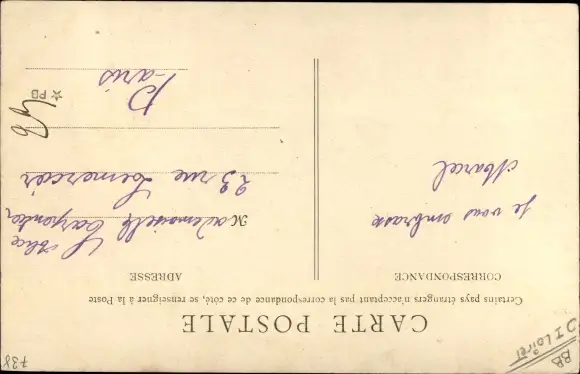 CARTE POSTALE
Certains pays étrangers n'acceptant pas la correspondance de ce côté, se renseigner à la Poste
CORRESPONDANCE
ADRESSE
je vous embrasse
Marcel
Mademoiselle Alice
Carpentier
23 rue Lemercier
Paris
PD
738
BB